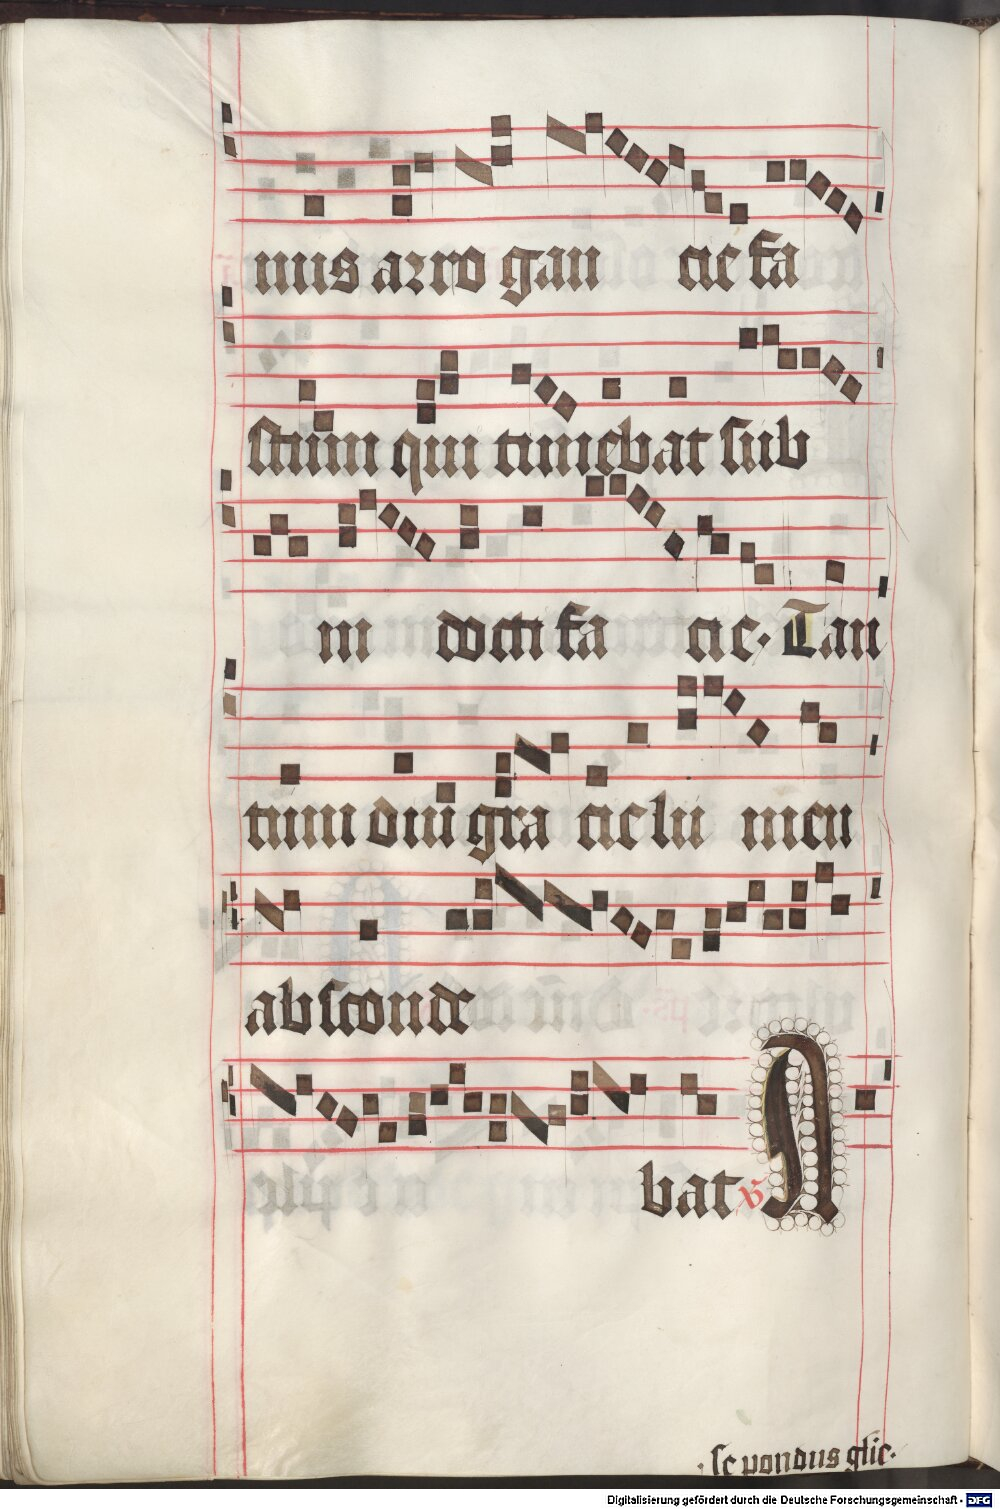 nus arro gan cie fa
stum qui timebat sub
in docti fa cie. Tan
tum dni gra cie lu men
ab sconde
bat ℣ A
se pondus glie.
Digitalisierung gefördert durch die Deutsche Forschungsgemeinschaft - DFG